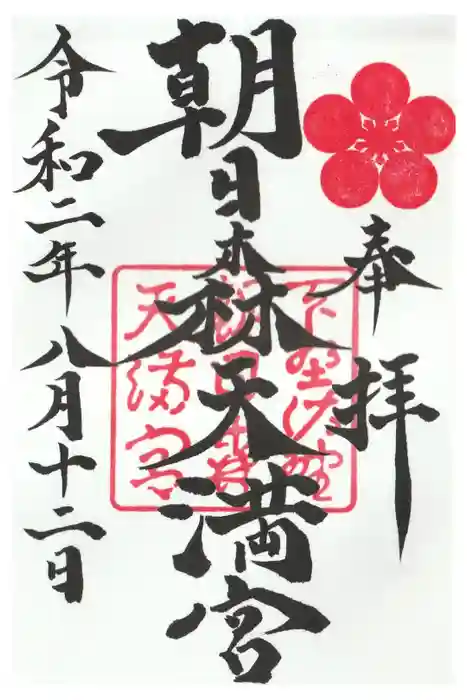 奉拝
朝日森天満宮
令和二年八月十二日
下野佐野
朝日森
天満宮